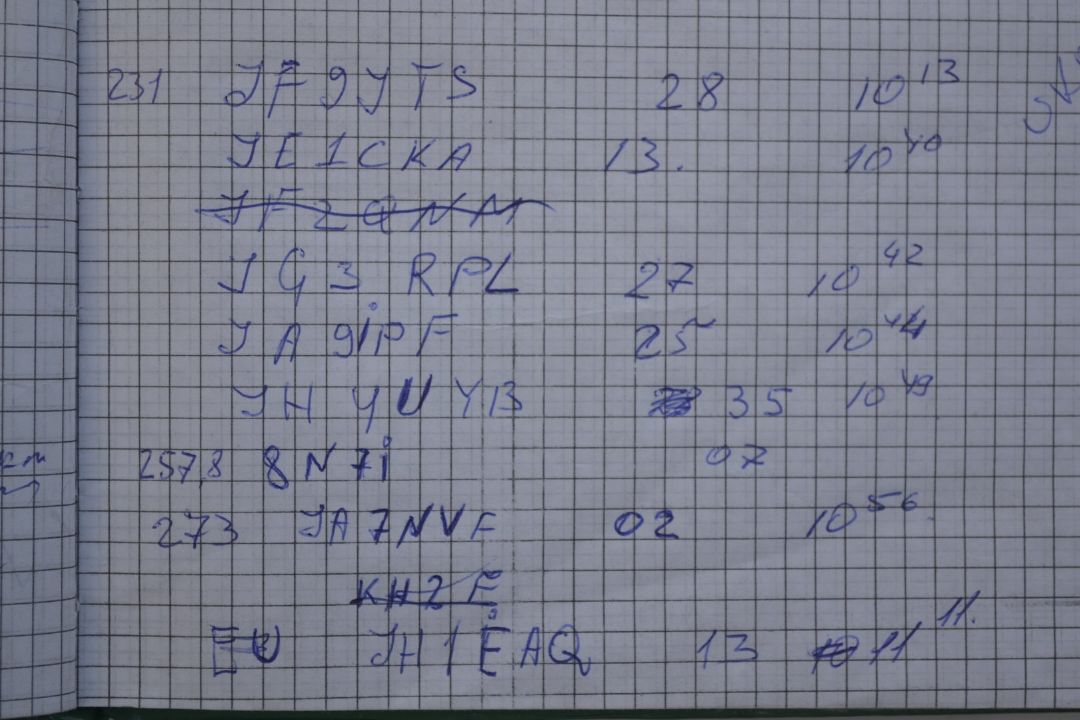 231 JF9JTS 28 10 13
JE1CKA 13. 10 40
JF2QNM
JG3 RPL 27 10 42
JA9iPF 25 10 44
JH4UYB 35 10 49
257,8 8N7i 07
273 JA7NVF 02 10 56
KH2F
JH1EAQ 13 11 11.